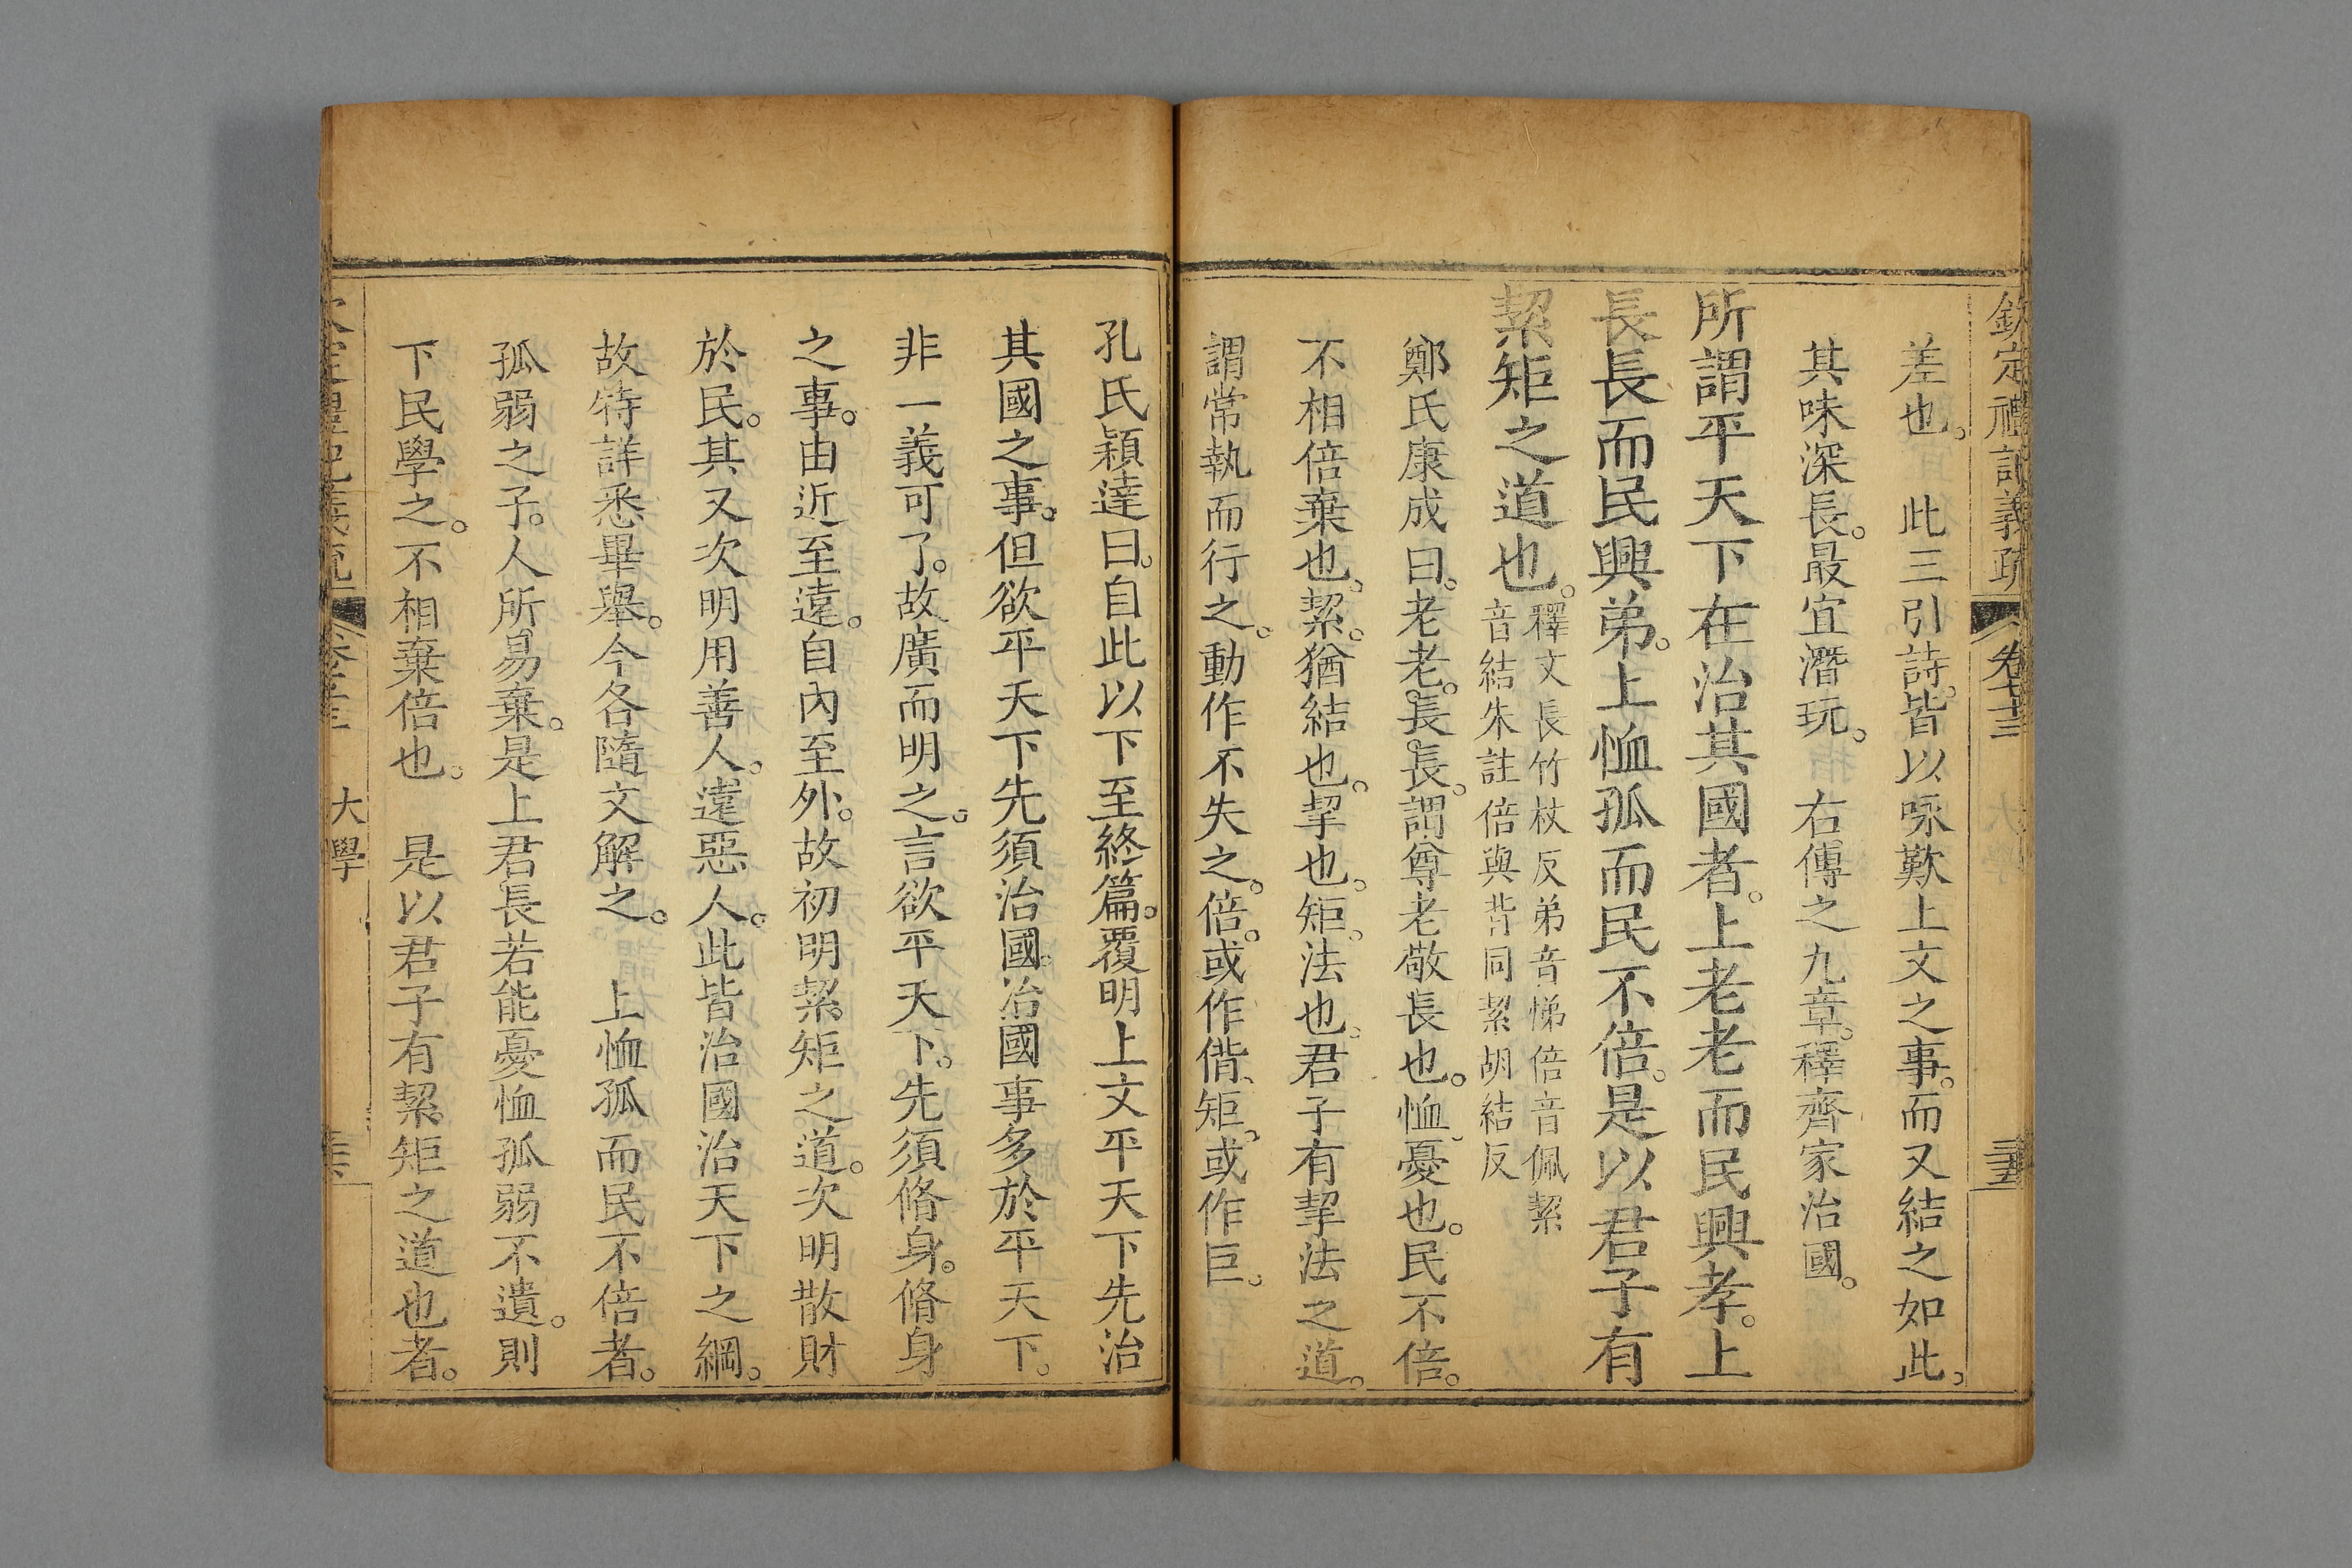 欽定禮記義疏 卷七十三
差也。 此三引詩。皆以咏歎上文之事。而又結之如此。
其味深長。最宜潛玩。 右傳之九章。釋齊家治國。
所謂平天下在治其國者。上老老而民興孝。上
長長而民興弟。上恤孤而民不倍。是以君子有
絜矩之道也。釋文長竹杖反弟音悌倍音佩絜
音結朱註倍與背同絜胡結反
鄭氏康成曰。老老。長長。謂尊老敬長也。恤。憂也。民不倍。
不相倍棄也。絜。猶結也。挈也。矩。法也。君子有挈法之道。
謂常執而行之。動作不失之。倍。或作偝。矩。或作巨。
孔氏穎達曰。自此以下至終篇。覆明上文平天下先治
其國之事。但欲平天下先須治國。治國事多於平天下。
非一義可了。故廣而明之。言欲平天下。先須脩身。脩身
之事。由近至遠。自內至外。故初明絜矩之道。次明散財
於民。其又次明用善人。遠惡人。此皆治國治天下之綱。
故特詳悉畢舉。今各隨文解之。 上恤孤而民不倍者。
孤弱之子。人所易棄。是上君長若能憂恤孤弱不遺。則
下民學之。不相棄倍也。 是以君子有絜矩之道也者。
大學